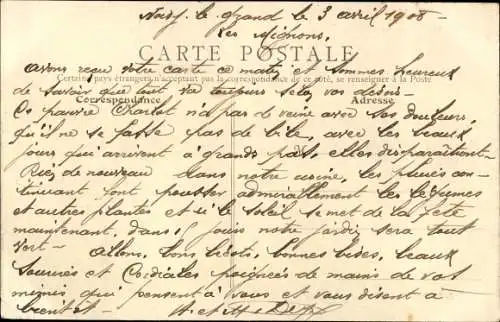 Noisy le grand le 3 avril 1908
Les Mignons,
CARTE POSTALE
avons reçu votre carte ce matin et sommes heureux
Certains pays étrangers n'acceptant pas la correspondance de ce côté, se renseigner à la Poste
de savoir que tout va toujours selon vos désirs
Correspondance
Adresse
Ce pauvre Charlot n'a pas de veine avec ses douleurs,
qu'il ne se fasse pas de bile, avec les beaux
jours qui arrivent à grands pas, elles disparaitront.
Rien de nouveau dans notre usine, les pluies con-
tinuant font pousser admirablement les légumes
et autres plantes et si le soleil se met de la fête
maintenant, dans jours notre jardin sera tout
vert - Allons, bons bécots, bonnes bises, beaux
sourires et Cordiales poignées de mains de vos
mignis qui pensent à vous et vous disent à
bientôt.